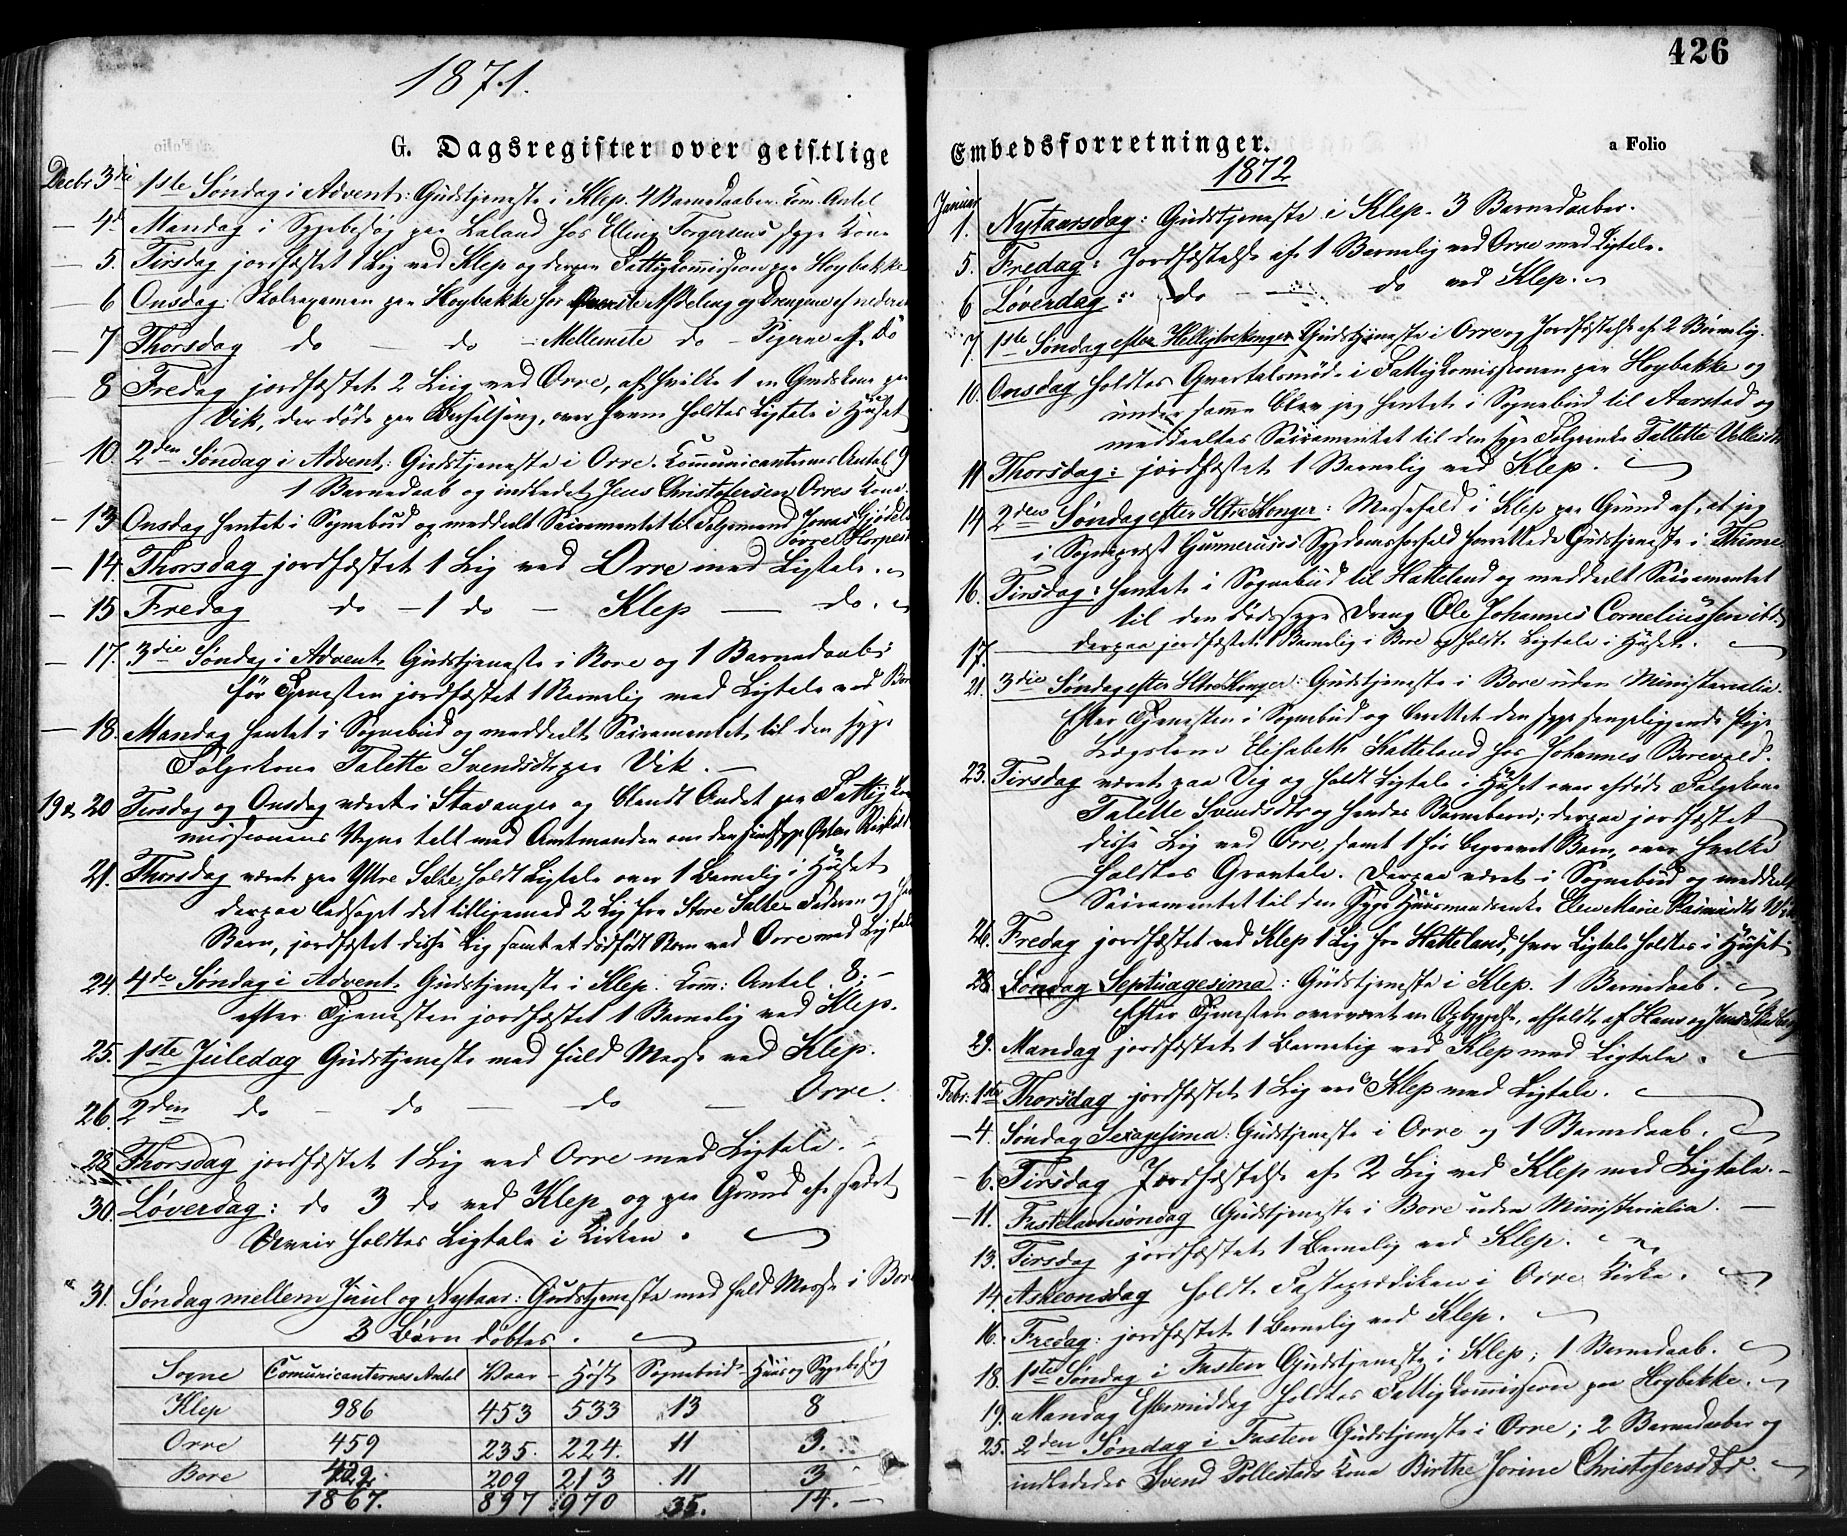 1871.
G. Dagsregister over geistlige
Decbr 3die 1ste Søndag i Advent: Gudstjeneste i Klep. 4 Barnedaaber. Com. Antal
4de Mandag i Sygebesøg paa Laland hos Elling Torgersens syge Kone
5. Tirsdag jordfæstet 1 Lig ved Klep og derpaa Fattigkommission paa Høybakke
6 Onsdag: Skolexamen paa Høybakke for Afdeling og Drengene af nederste
7 Thorsdag do – do – Mellemste do – Pigerne af do
8 Fredag jordfæstet 2 Liig ved Orre, af hvilke 1 en Gmdskone paa
Vik, der døde paa Barselseng, over hvem holdtes Ligtale i Huset
10. 2den Søndag i Advent: Gudstjeneste i Orre. Communicanternes Antal 9
1 Barnedaab og indledet Jens Christofersen Orres Kone.
13 Onsdag hentet i Sognebud og meddeelt Sacramentet til Folgemand Jonas
14. Thorsdag jordfæstet 1 Lig ved Orre med Ligtale.
15 Fredag do – 1 do – Klep – do.
17. 3die Søndag i Advent. Gudstjeneste i Bore og 1 Barnedaab;
før Tjenesten jordfæstet 1 Barnelig med Ligtale ved Bore
18. Mandag hentet i Sognebud og meddeelt Sacramentet til den syge
Folgekone Talette Svendsdtr paa Vik.
19 & 20 Tirsdag og Onsdag været i Stavanger og blandt Andet paa Fattigkom
missionens Vegne talt med Amtmanden om den sindssyge
21. Thorsdag været paa Yttre Salte, holdt Ligtale over 1 Barnelig i Huset
derpaa ledsaget det tilligemed 2 Lig fra Store Salte – Faderen og
Barn, jordfæstet disse Lig samt et dødfødt Barn ved Orre med Ligtale
24. 4de Søndag i Advent. Gudstjeneste i Klep. Comm: Antal. 8. –
efter Tjenesten jordfæstet 1 Barnelig ved Klep.
25. 1ste Juledag Gudstjeneste med fuld Messe ved Klep.
26. 2den do – do – do – Orre.
28 Thorsdag jordfæstet 1 Lig ved Orre med Ligtale. –
30. Løverdag: do 3 do ved Klep, og paa Grund af haardt
Uveir holdtes Ligtale i Kirken.
31. Søndag mellem Juul og Nytaar: Gudstjeneste med fuld Messe i Bore
3 Børn døbtes.
Sogne Comunicanternes Antal Vaar – Høst Sognebud – Huus og Sygebesøg
Klep 986 453 533 13 8
Orre 459 235. 224. 11 3.
Bore 422. 209 213 11 3
1867. 897 970 35. 14. –
426
Embedsforretninger. a Folio
1872
Januar
1. Nytaarsdag: Gudstjeneste i Klep. 3 Barnedaaber.
5. Fredag: Jordfæstelse af 1 Barnelig ved Orre med Ligtale.
6 Løverdag: do – do ved Klep.
7. 1ste Søndag efter Helligtrekonger Gudstjeneste i Orre og Jordfæstelse af 2 Børnelig.
10. Onsdag holdtes Qvartalsmøde i Fattigkomissionen paa Høybakke og
under samme blev jeg hentet i Sognebud til Aarstad og
meddeeltes Sacramentet til den syge Folgeenke Tallette
11 Thorsdag: jordfæstet 1 Barnelig ved Klep.
14 2den Søndag efter H.treKonger: Messefald i Klep paa Grund af, at jeg
i Sogneprest Gunnerusses Sygdomsforfald forrettede Gudstjeneste i Thime.
16. Tirsdag: hentet i Sognebud til Hatteland og meddeelt Sacramentet
til den dødssyge Dreng Ole Johannes Corneliussen
17. derpaa jordfæstet 1 Barnelig i Bore og holdt Ligtale i Huset.
21. 3die Søndag efter H.treKonger: Gudstjeneste i Bore uden Ministerialia.
Efter Tjenesten i Sognebud og berettet den syge sengeliggende Pige
Lægslem Elisabeth Hatteland hos Johannes Borevold.
23. Tirsdag været paa Vig og holdt Ligtale i Huset over afdøde Folgekone
Talette Svendsdtr og hendes Barnebarn; derpaa jordfæstet
disse Lig ved Orre, samt 1 før begravet Barn, over hvilke
holdtes Gravtale. Derpaa været i Sognebud og meddeelt
Sacramentet til den syge Huusmandsenke Elen Marie Rasmusdtr Vik
26. Fredag jordfæstet ved Klep 1 Lig fra Hatteland, hvor Ligtale holdtes i Huset
28. Søndag Septuagesima: Gudstjeneste i Klep. 1 Barnedaab.
Efter Tjenesten overværet en Opbyggelse, afholdt af Hans og
29. Mandag jordfæstet 1 Barnelig ved Klep med Ligtale.
Febr: 1ste Thorsdag jordfæstet 1 Lig ved Klep med Ligtale.
4. Søndag Sexagesima: Gudstjeneste i Orre og 1 Barnedaab.
6. Tirsdag Jordfæstelse af 2 Lig ved Klep med Ligtale. –
11. Fastelavnsøndag Gudstjeneste i Bore uden Ministerialia. –
13. Tirsdag jordfæstet 1 Barnelig ved Klep.
14. Askeonsdag holdt Fasteprædiken i Orre Kirke.
16. Fredag: jordfæstet 1 Barnelig ved Klep.
18. 1ste Søndag i Fasten Gudstjeneste i Klep; 1 Barnedaab.
19. Mandag Eftermiddag holdtes Fattigkommission paa Høybakke.
25. 2den Søndag i Fasten Gudstjeneste i Orre; 2 Barnedaaber og
indlededes Svend Pollestads Kone Birthe Jorine Christofersdtr.